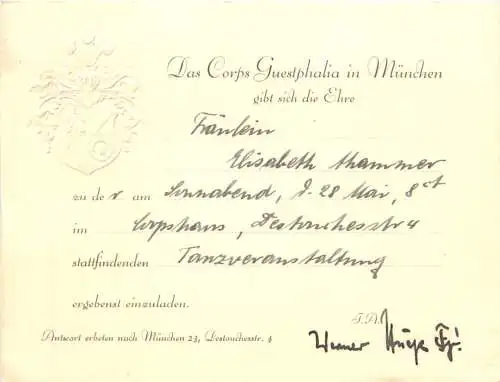 Das Corps Guestphalia in München
gibt sich die Ehre
Fräulein
Elisabeth Hammer
zu der am Sonnabend, d. 28 Mai, 8 ct
im Corpshaus, Destouchesstr 4
stattfindenden Tanzveranstaltung
ergebenst einzuladen.
I.A.
Antwort erbeten nach München 23, Destouchesstr. 4
Werner